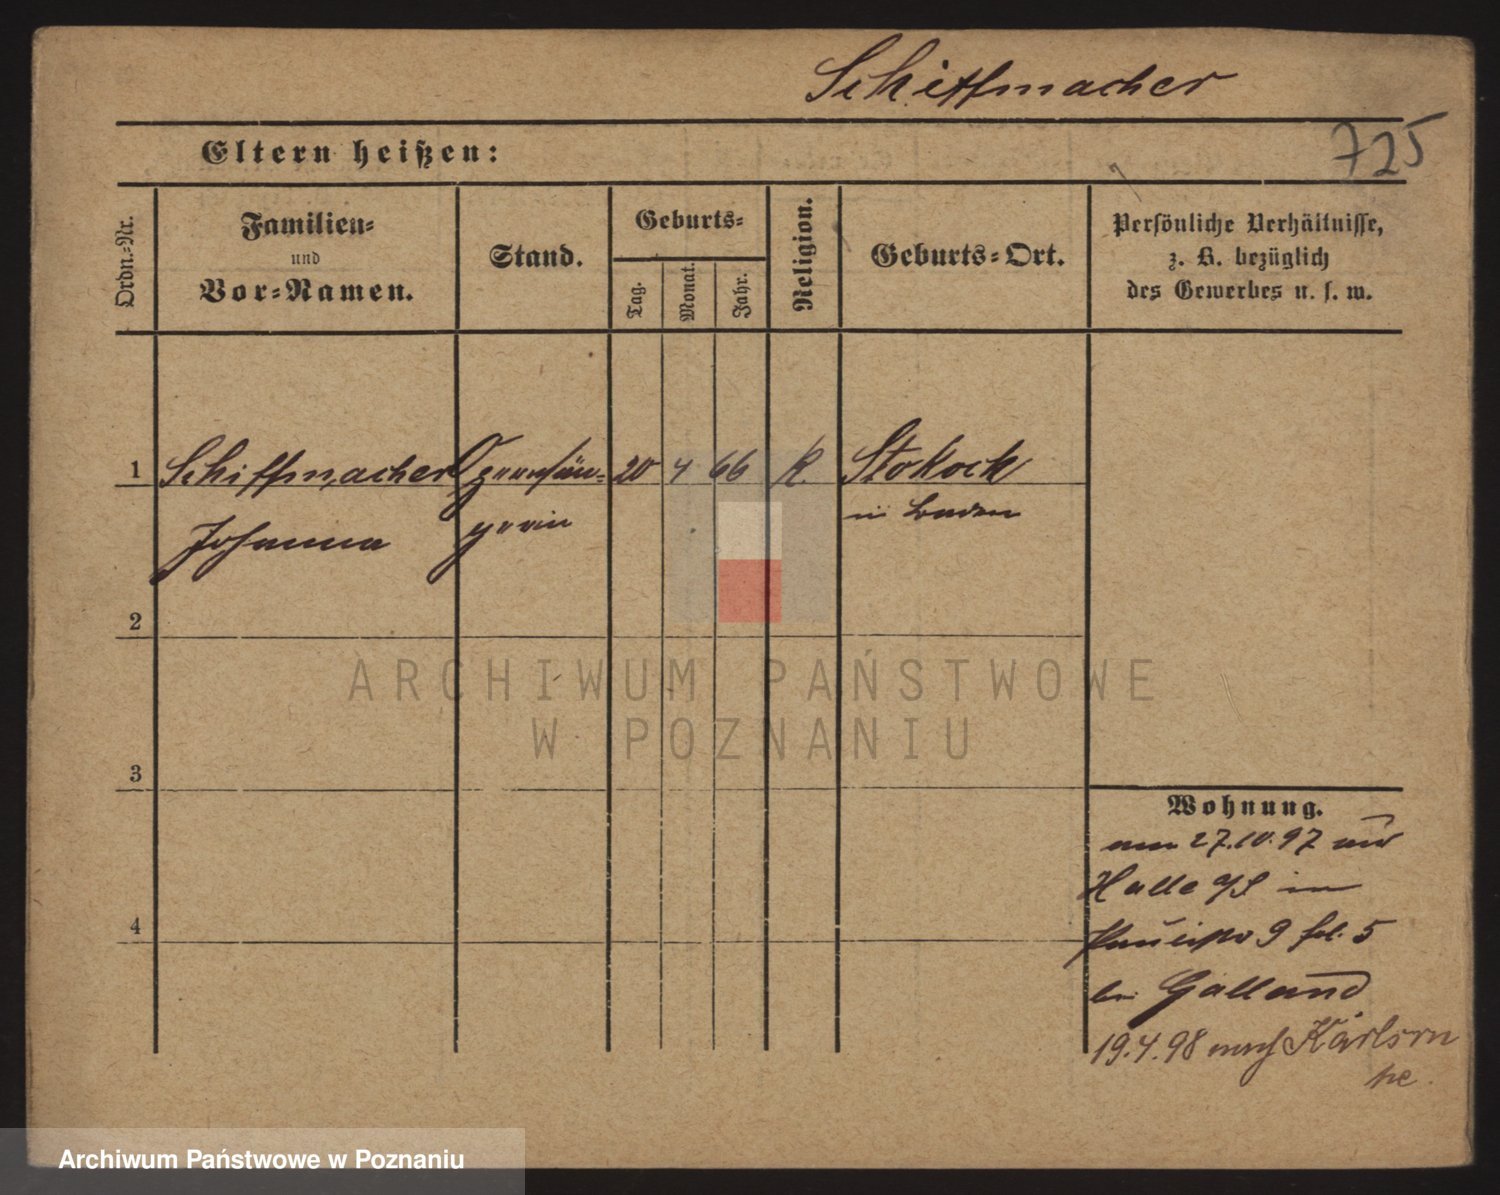 Schiffmacher
725
Eltern heißen:
Ordn.-Nr.
Familien-
und
Vor-Namen.
Stand.
Geburts-
Tag.
Monat.
Jahr.
Religion.
Geburts-Ort.
Persönliche Verhältnisse,
z. B. bezüglich
des Gewerbes u. s. w.
1 Schiffmacher Opernsän- 20 4 66 K. Stokach
Johanna gerin in Baden
2
3
4
Wohnung.
am 27.10.97 aus
Halle a/S in
9 fol. 5
bei Galland
19.4.98 nach Karlsru
he.
ARCHIWUM PAŃSTWOWE
W POZNANIU
Archiwum Państwowe w Poznaniu